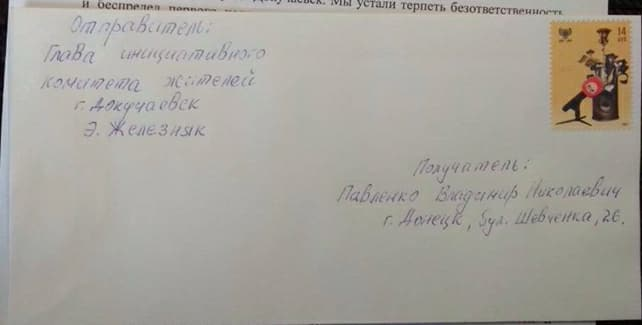 и беспредел первого
Мы устали терпеть безответственность
Отправитель:
Глава инициативного
комитета жителей
г. Докучаевск
Э. Железняк
14
Получатель:
Павленко Владимир Николаевич
г. Донецк, бул. Шевченка, 26.